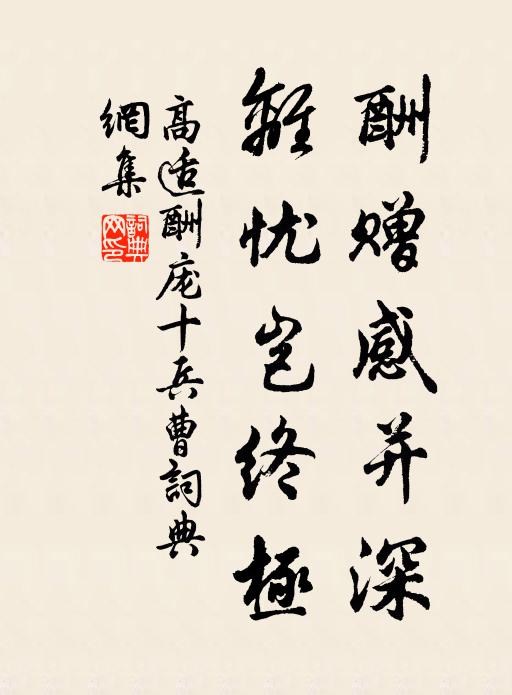 酬赠感并深
離忧岂终極
高适酬庞十兵曹詞典
網集
詞典
网印